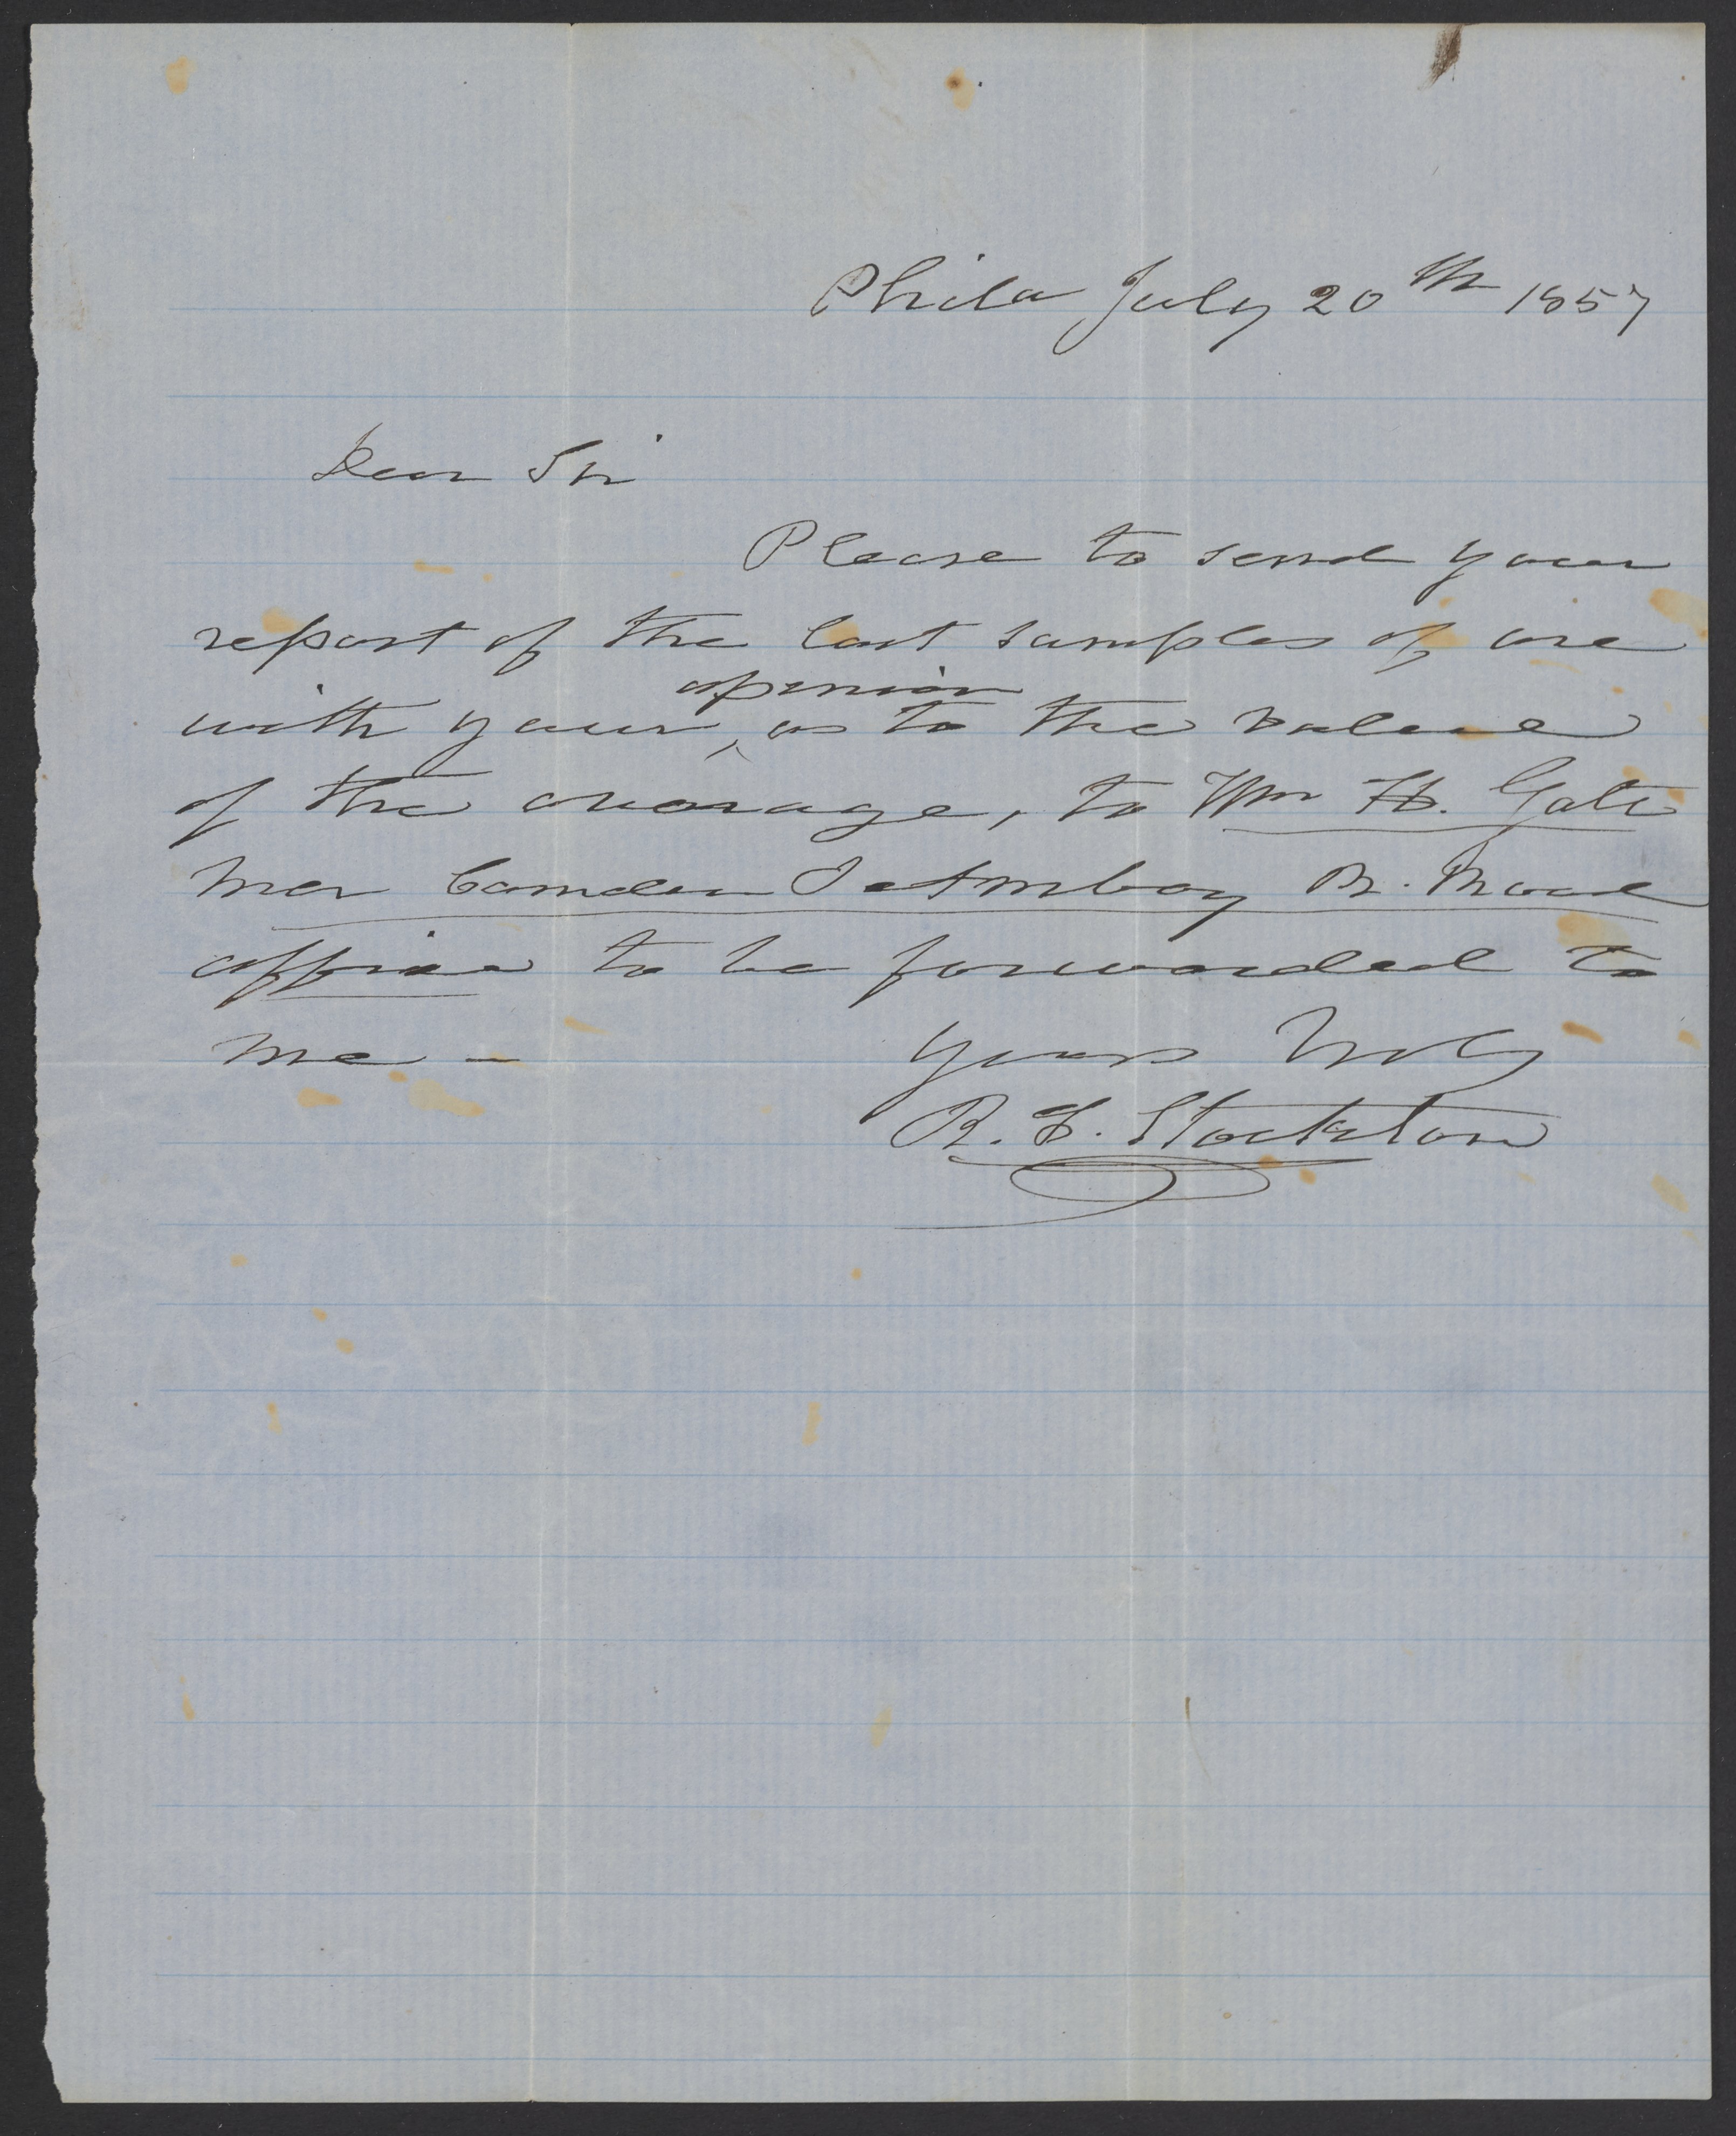 Phila July 20th 1857
Dear Sir
Please to send your
report of the last samples of ore
opinion
with your ‸ as to the value
of the average, to Wm H. Gatz
mer Camden & Amboy R. Road
office to be forwarded to
me - Yours Truly
R. F. Stockton